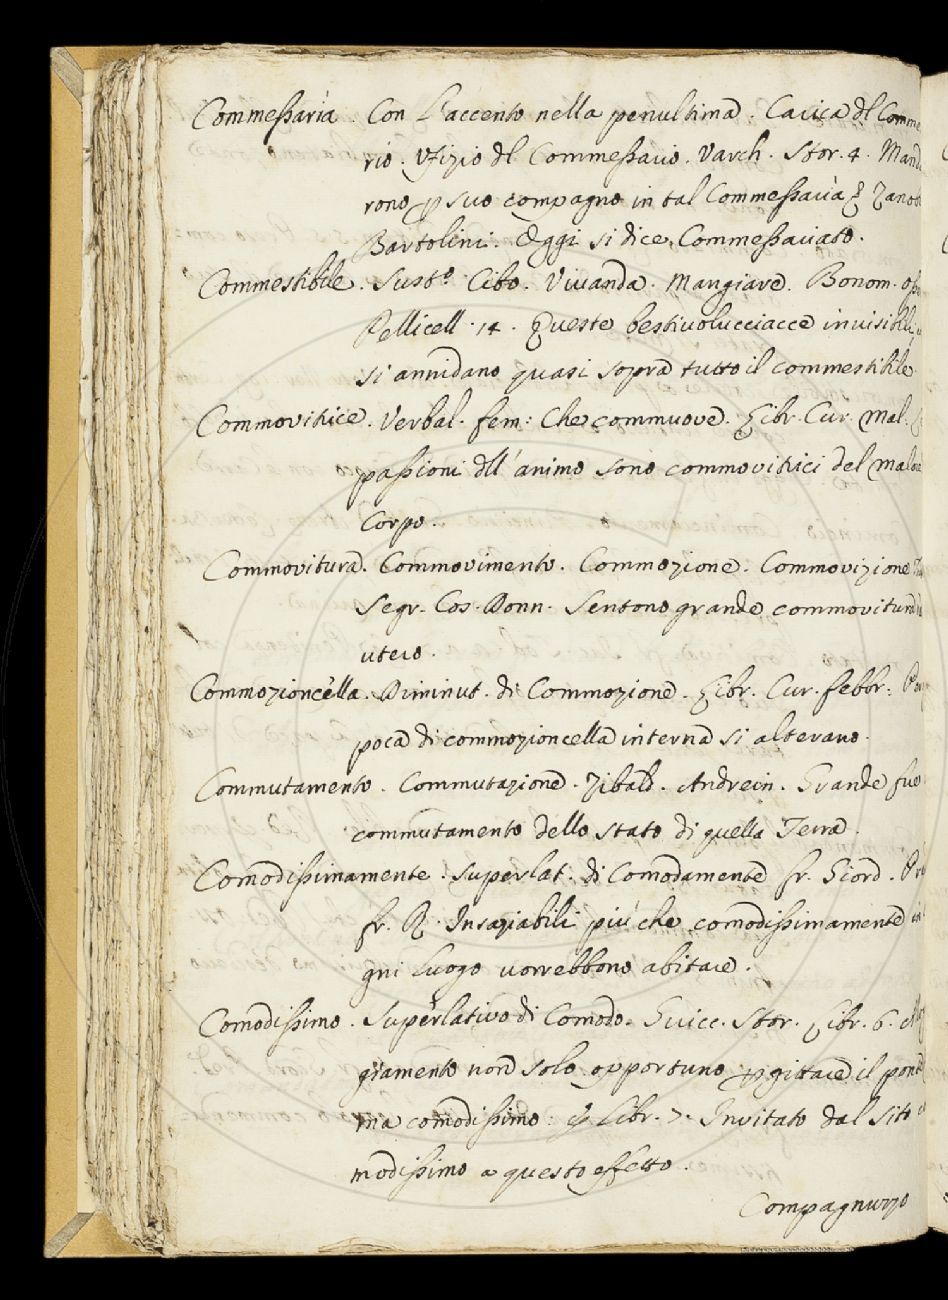 Commessaria. Con l'accento nella penultima. Carica dl Comme
rio. Ufizio dl Commessario. Varch. Stor. 4. Mand
rono p suo compagno in tal Commessaria Zanob
Bartolini. Oggi si dice Commessariato.
Commestibile. Sust.º Cibo. Vivanda. Mangiare. Bonom. oss
Pellicell. 14. Queste bestivolucciacce invisibili
si annidano quasi sopra tutto il commestibile
Commovitrice. Verbal. fem: Che commuove. Libr. Cur. Mal.
passioni dll'animo sono commovitrici del malore
Corpo.
Commovitura. Commovimento. Commozione. Commovizione
Segr. Cos. Donn. Sentono grande commovitura
utero.
Commozioncèlla. Diminut. di Commozione. Libr. Cur. febbr: Po
poca di commozioncella interna si alterano.
Commutamento. Commutazione. Zibald. Andrein. Grande fue
commutamento dello stato di quella Terra.
Comodissimamente. Superlat. di Comodamente fr. Giord. Pre
fr. R. Insaziabili più che comodissimamente in
gni luogo vorrebbono abitare.
Comodissimo. Superlativo di Comodo. Guicc. Stor. Libr. 6. All
giamento non solo opportuno p gittare il pont
ma comodissimo: Libr. 7. Invitato dal sito
modissimo a questo effetto.
Compagnuzzo